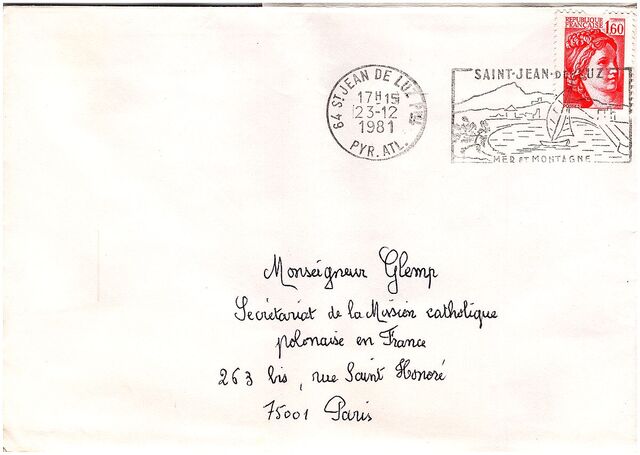 REPUBLIQUE
FRANÇAISE
1,60
64 ST JEAN DE LUZ PPAL
17H15
23-12
1981
PYR. ATL.
SAINT-JEAN-DE-LUZ
MER ET MONTAGNE
Monseigneur Glemp
Secrétariat de la Mission catholique
polonaise en France
263 bis, rue Saint Honoré
75001 Paris